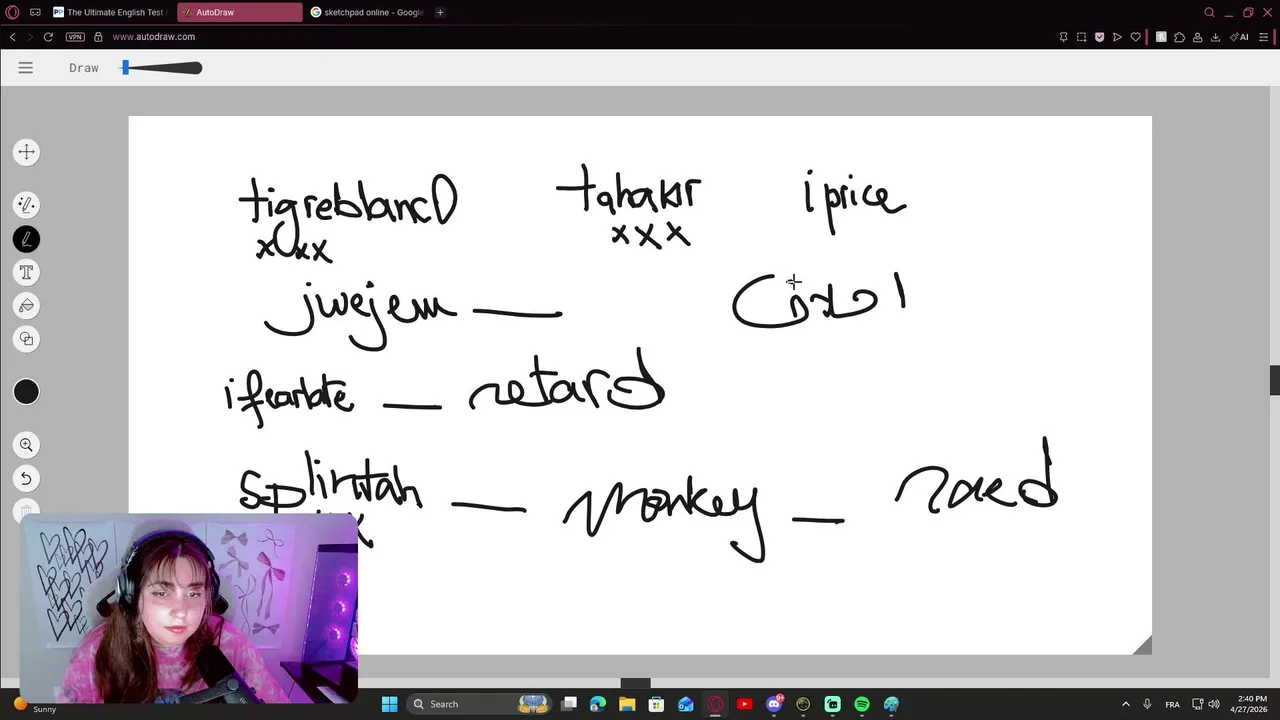 The Ultimate English Test
AutoDraw
sketchpad online - Google
VPN
www.autodraw.com
AI
Draw
tigreblanc0 tahakir iprice
xxx xxx
jwejem
ifearbte — retard
splintah — monkey —
Search
Sunny
FRA
2:40 PM
4/27/2026